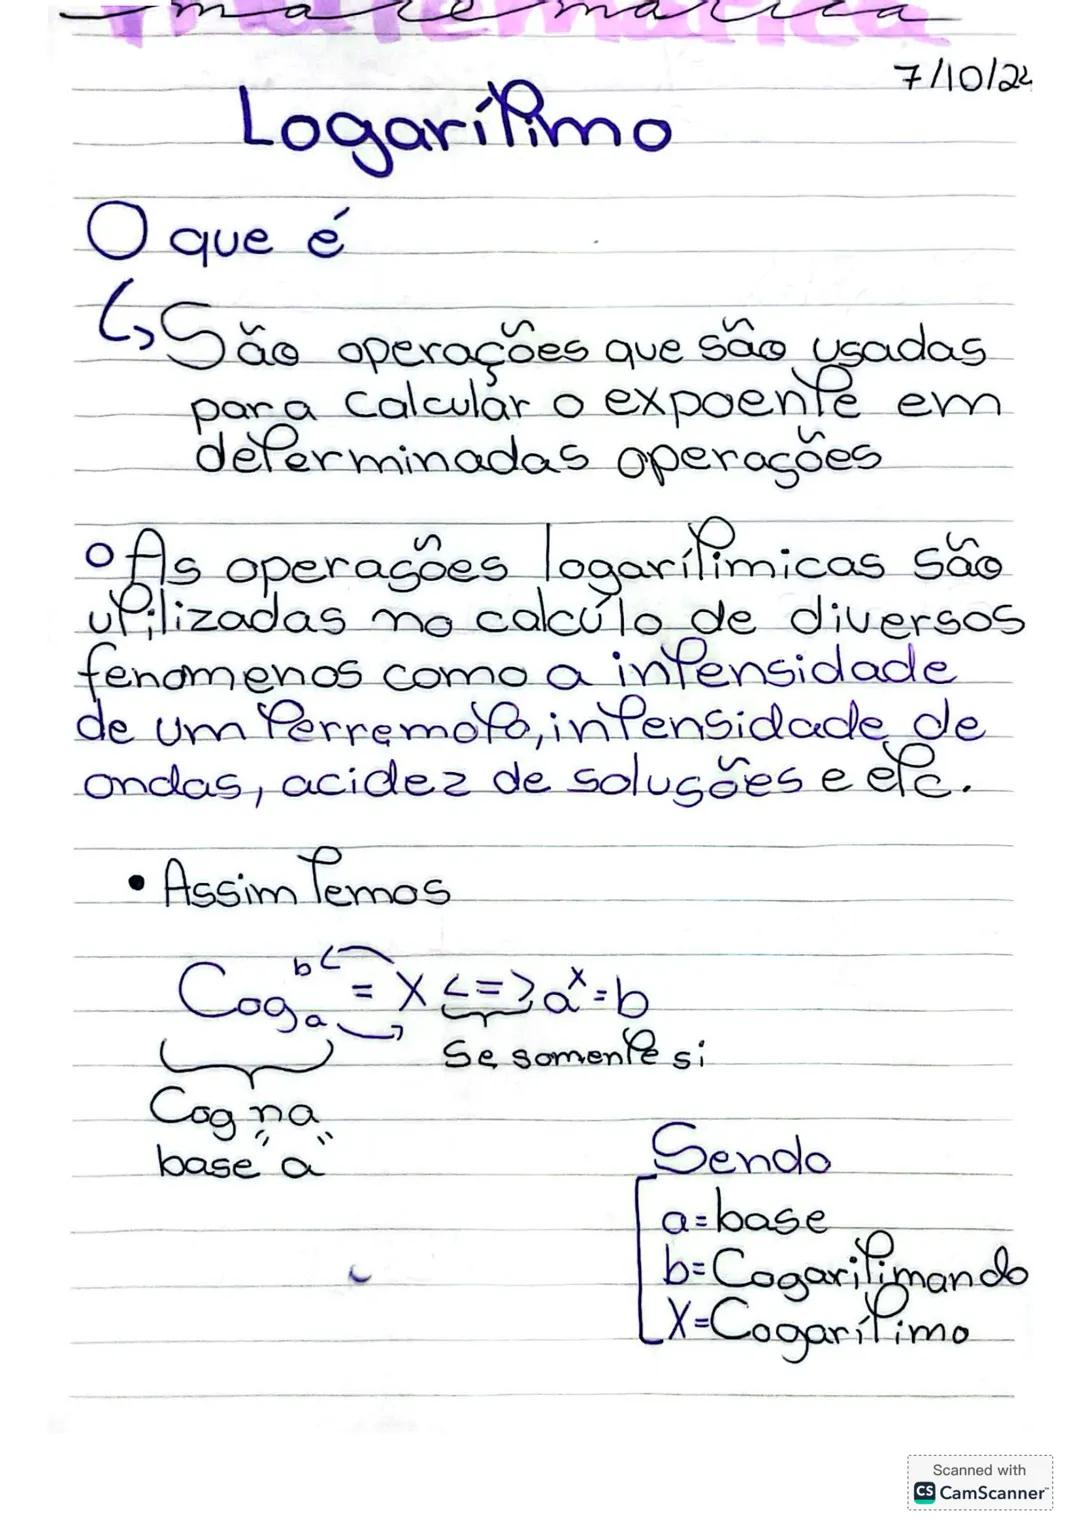 matemática
7/10/24
Logarítimo
O que é
↳ São operações que são usadas
para calcular o expoente em
determinadas operações
As operações logarítimicas são
utilizadas no calcúlo de diversos
fenomenos como a intensidade
de um terremoto, intensidade de
ondas, acidez de soluções e etc.
• Assim temos
Log_a^b = X <=> a^x = b
Se somente si
Log na
base "a"
Sendo
a=base
b=Logaritimando
X=Logarítimo
Scanned with
CS CamScanner